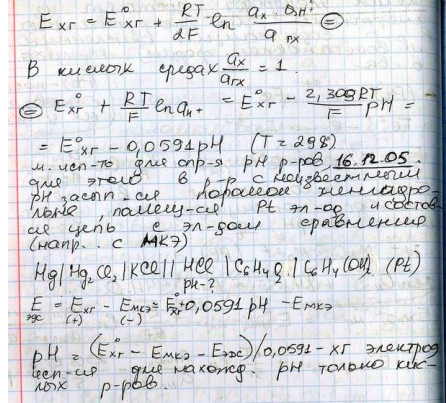 E хг = E°хг + RT/2F ln aх · a²H+ / a гх =
В кислых средах aх/aгх = 1.
= E°хг + RT/F ln aH+ = E°хг - 2,303RT/F pH =
= E°хг - 0,0591 pH (T = 298)
м. исп-то для опр-я pH р-ров, 16.12.05.
для этого в р-р с неизвестным
pH засып-ся порошок хингидро-
, помещ-ся Pt эл-од и состав-
ся цепь с эл-дом сравнения
(напр. с МКЭ)
Hg | Hg2Cl2 | KCl || HCl | C6H4O2 | C6H4(OH)2 (Pt)
pH - ?
Eэдс = Eхг - Eмкэ = E°хг - 0,0591 pH - Eмкэ
(+) (-)
pH = (E°хг - Eмкэ - Eэдс) / 0,0591 - ХГ электрод
исп-ся для нахожд. pH только кис-
лых р-ров.